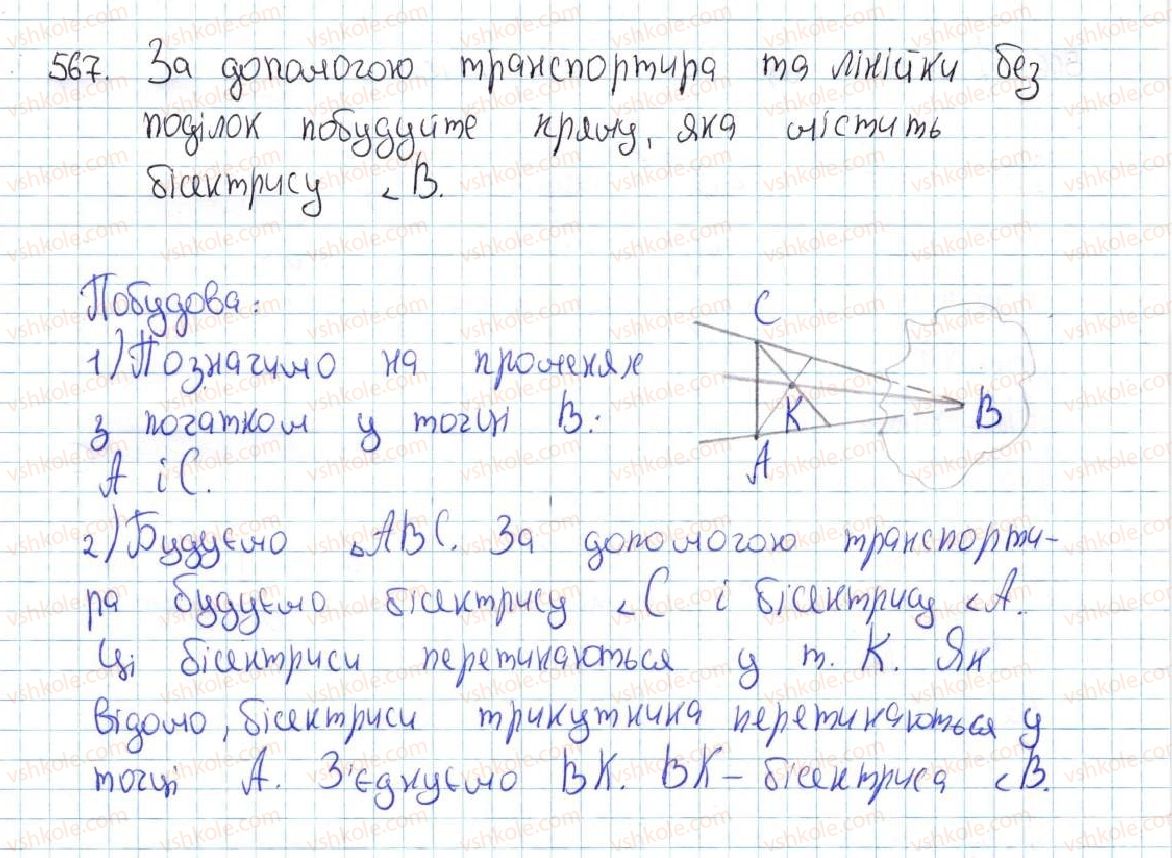 567. За допомогою транспортира та лінійки без
поділок побудуйте пряму, яка містить
бісектрису ∠B.
Побудова:
1) Позначимо на променях
з початком у точці B:
A і C.
C
K
B
A
2) Будуємо △ABC. За допомогою транспорти-
ра будуємо бісектрису ∠C і бісектрису ∠A.
Ці бісектриси перетинаються у т. K. Як
відомо, бісектриси трикутника перетинаються у
точці A. З'єднуємо BK. BK – бісектриса ∠B.
vshkole.com